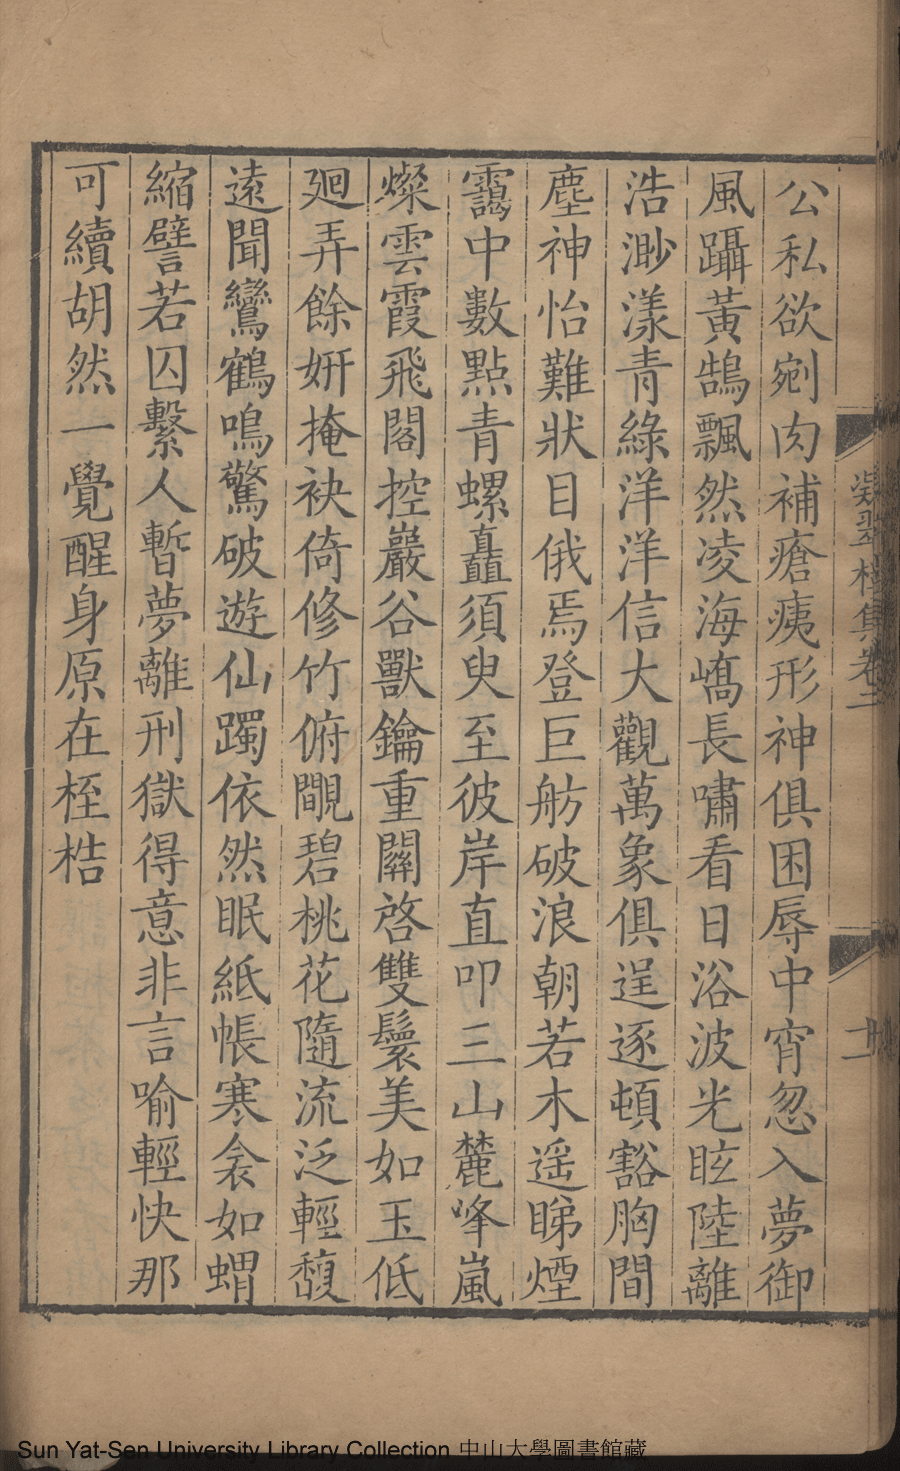 公私欲剜肉補瘡痍形神俱困辱中宵忽入夢御
風躡黃鵠飄然凌海嶠長嘯看日浴波光眩陸離
浩渺漾青綠洋洋信大觀萬象俱逞逐頓豁胸間
塵神怡難狀目俄焉登巨舫破浪朝若木遥睇煙
靄中數點青螺矗須臾至彼岸直叩三山麓峰嵐
燦雲霞飛閣控巖谷獸鑰重關啓雙鬟美如玉低
廻弄餘妍掩袂倚修竹俯瞰碧桃花隨流泛輕馥
遠聞鸞鶴鳴驚破遊仙躅依然眠紙帳寒衾如蝟
縮譬若囚繫人暫夢離刑獄得意非言喻輕快那
可續胡然一覺醒身原在桎梏
集卷二
Sun Yat-Sen University Library Collection 中山大學圖書館藏